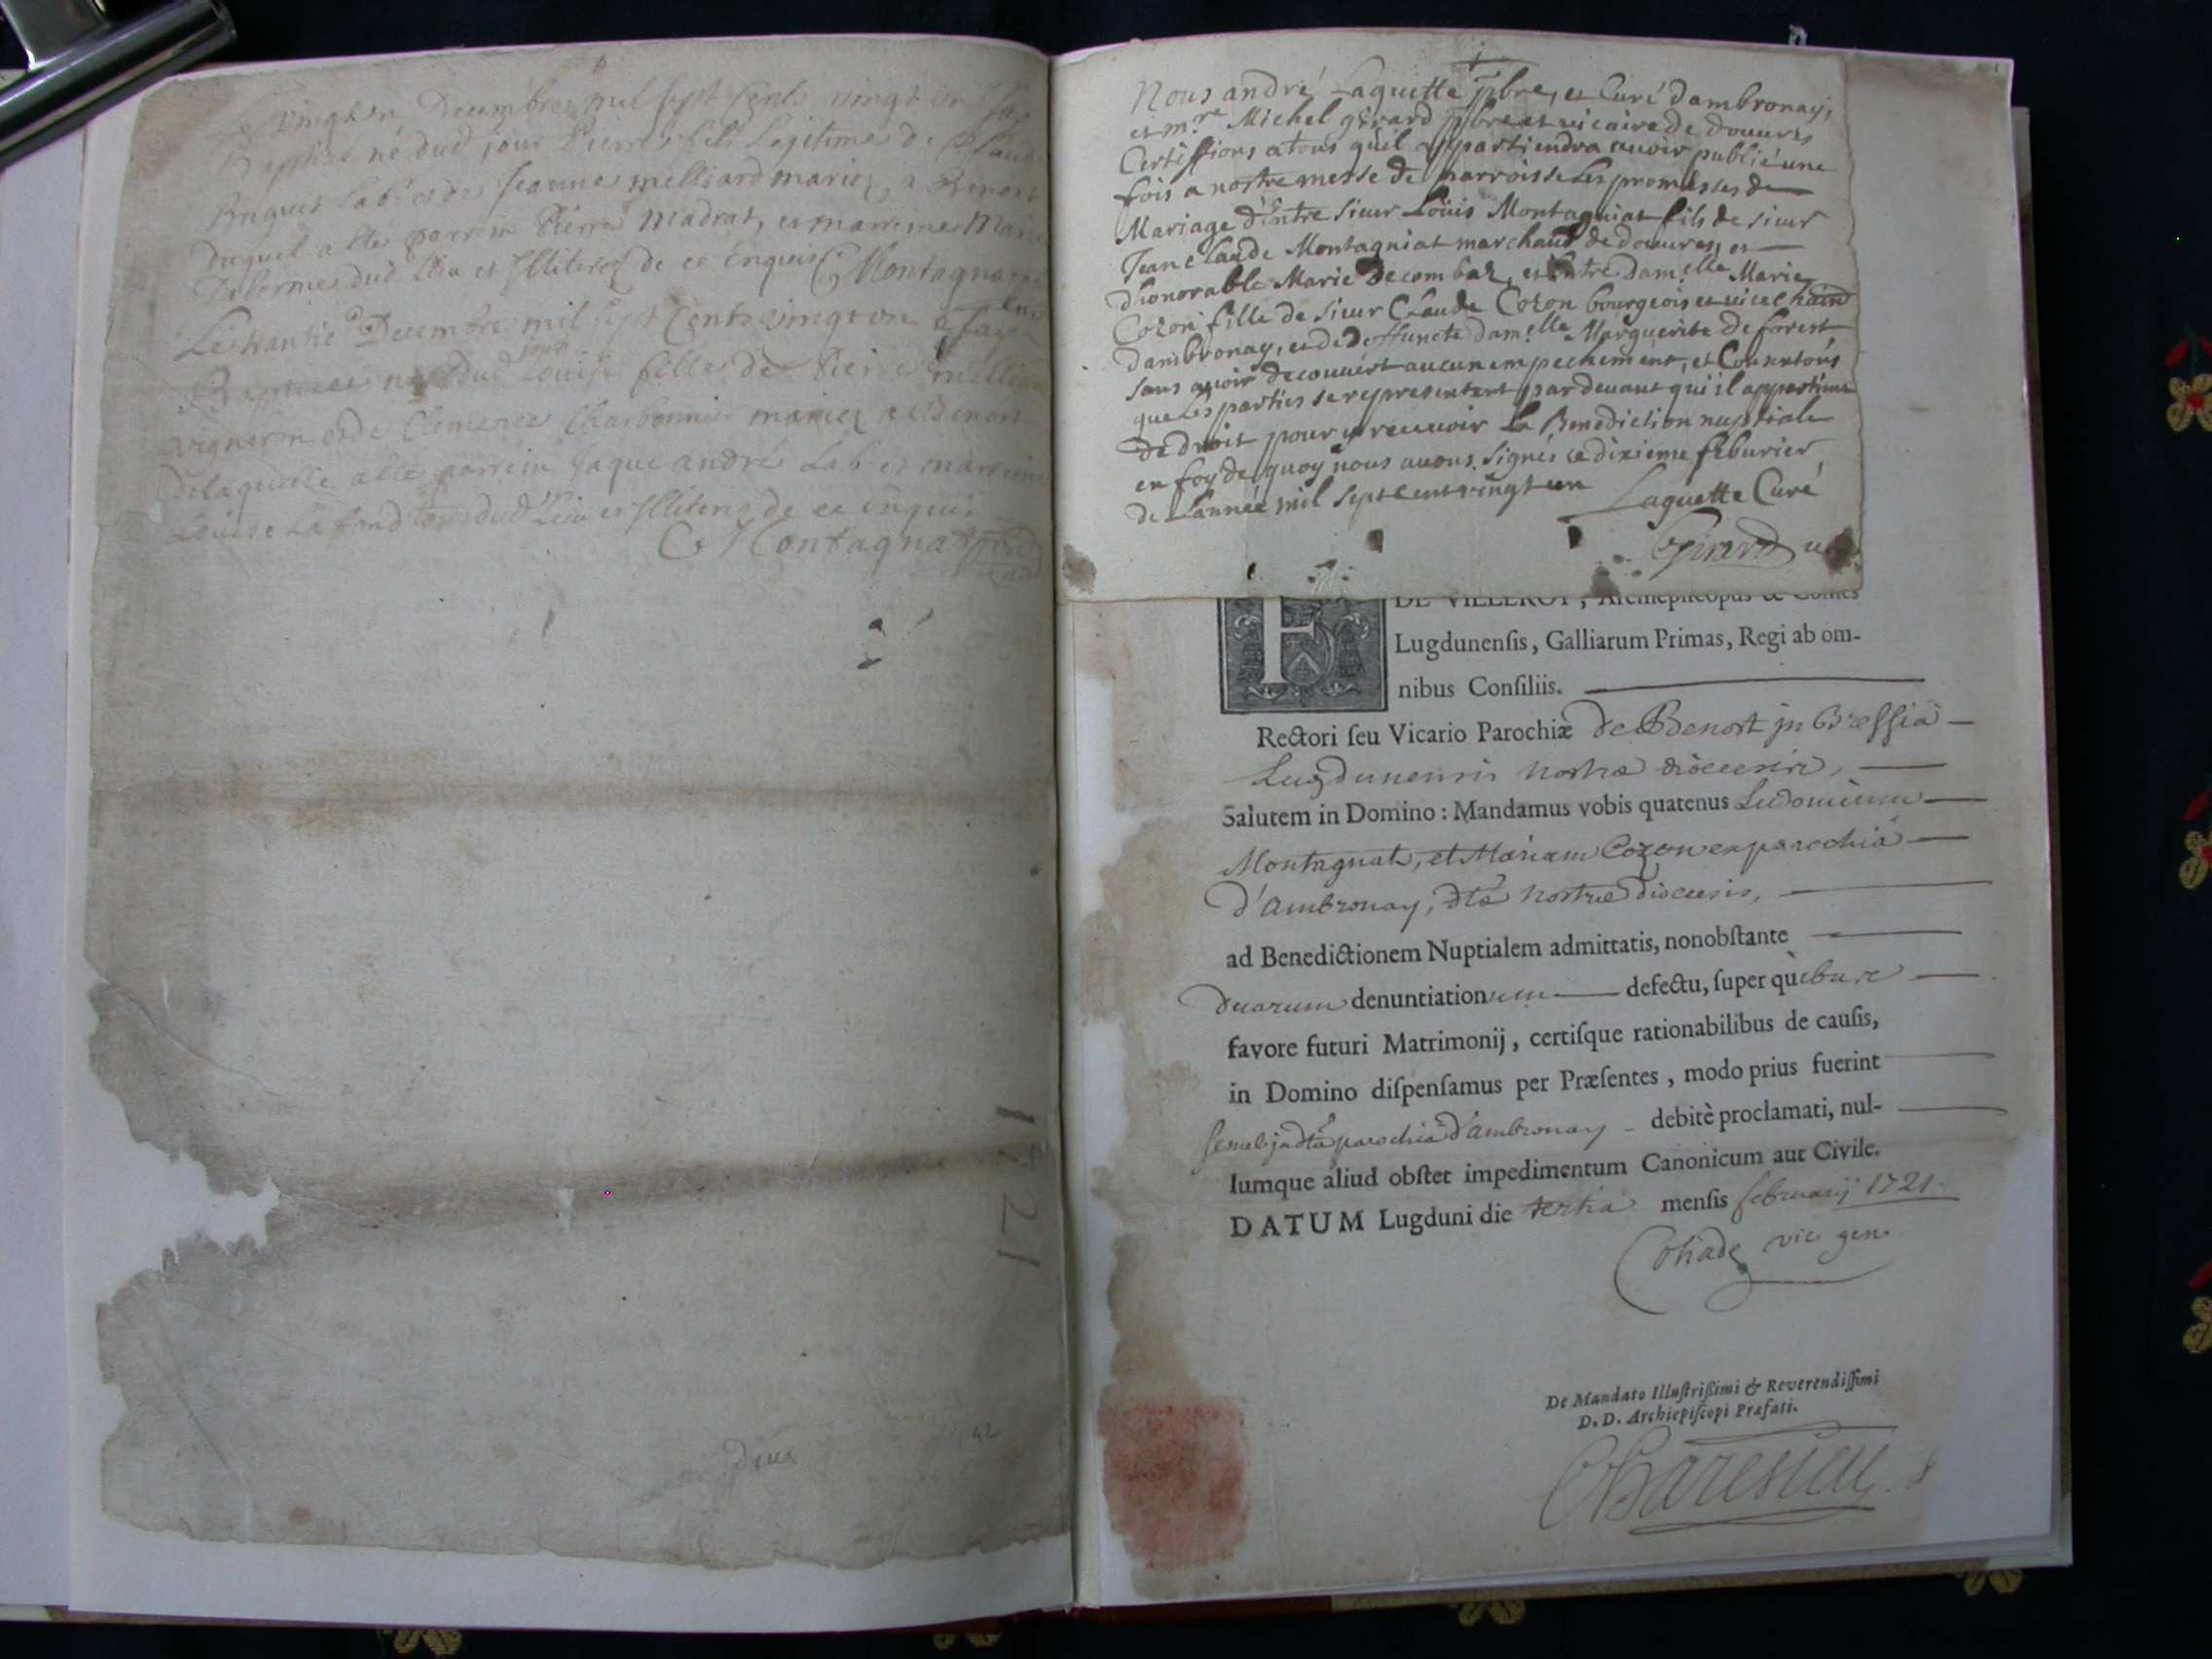 Le vingt un Decembre mil sept cents vingt un
Baptisé né dud jour Pierre fils Legitime de
et de jeanne melliard mariez a Benort
Duquel a este parrein Pierre Madrat, et marreine Marie
Delorme dud Lieu et Illiterez de ce enquis Montagnat
Le trantie Decembre mil sept Cents vingt un
Baptisée née dud jour Louise fille de Pierre
vigneron et de Clemence Charbonnier mariez a Benort
De laquelle a este parrein Jaque andré Lab. et marreine
Louise Lafond tous dud Lieu et Illiterez de ce enquis
Montagnat
1721
42
Nous andré Laguette pbre, et Curé dambronay,
et m.re Michel girard pbre et vicaire de douures
Certiffions a tous quil appartiendra auoir publié une
fois a nostre messe de parroisse Les promesses de
Mariage d'Entre sieur Loüis Montagniat fils de sieur
Jean claude Montagniat marchand de douures, et
d'honorable Marie Decombaz, et Entre Dam.elle Marie
Cozon fille de sieur Claude Cozon bourgeois et
dambronay, et de Deffuncte Dam.elle Marguerite de forest
sans auoir decouuert aucun empechement, et
que Les parties se representent par deuant qui il appartient
de droit pour y receuoir La Benediction nuptiale
en foy de quoy nous auons signés ce dixieme feburier
de Lannée mil sept cent vingt un Laguette Curé
Girard
F DE VILLEROY, Archiepiscopus & Comes
Lugdunensis, Galliarum Primas, Regi ab om-
nibus Consiliis.
Rectori seu Vicario Parochiæ de Benort in Bressia
Lugdunensis nostræ diocesis,
Salutem in Domino : Mandamus vobis quatenus Ludovicum
Montagnat, et Mariam Cozon ex parochia
d'Ambronay, dtæ nostræ diocesis,
ad Benedictionem Nuptialem admittatis, nonobstante
duarum denuntiationum defectu, super quibus
favore futuri Matrimonij, certisque rationabilibus de causis,
in Domino dispensamus per Præsentes, modo prius fuerint
semel in dtâ parochiâ d'ambronay debitè proclamati, nul-
lumque aliud obstet impedimentum Canonicum aut Civile.
DATUM Lugduni die tertia mensis februarij 1721.
vic gen.
De Mandato Illustrissimi & Reverendissimi
D. D. Archiepiscopi Præfati.